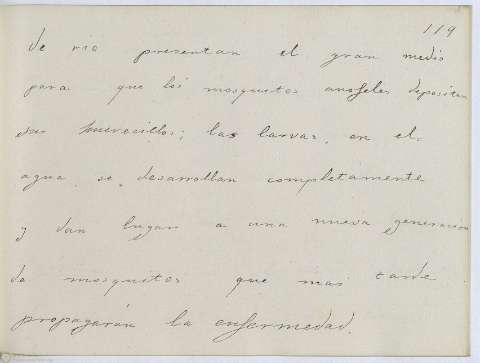 119
de rio presentan el gran medio
para que los mosquitos anofeles depositen
sus huevecillos; las larvas, en el
agua se desarrollan completamente
y dan lugar a una nueva generacion
de mosquitos que mas tarde
propagarán la enfermedad.